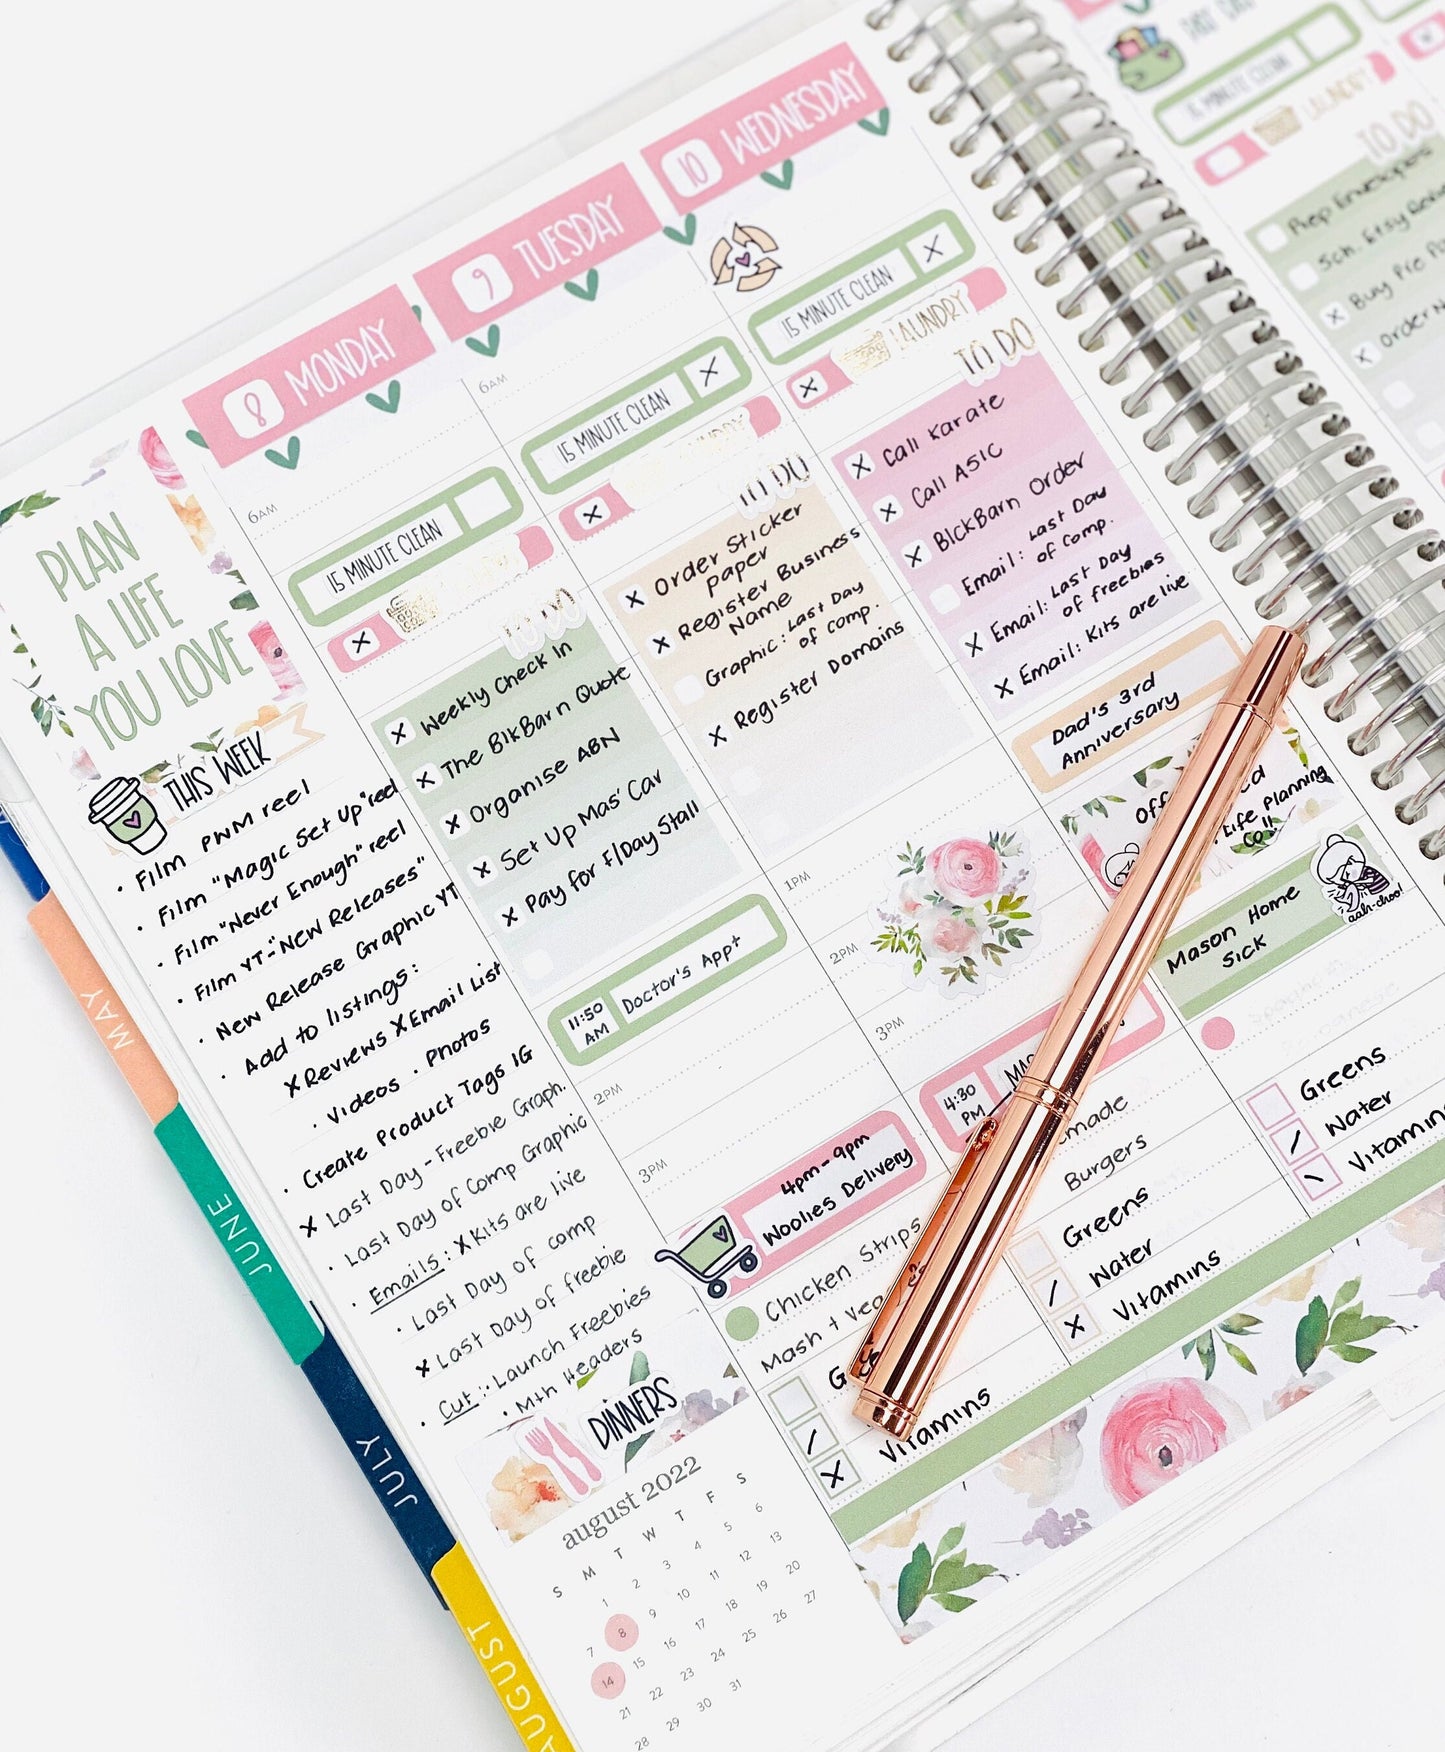 PLAN
A LIFE
YOU LOVE
THIS WEEK
· Film PWM reel
· Film "Magic Set Up" reel
· Film "Never Enough" reel
· Film YT - "NEW Releases"
· New Release Graphic YT
· Add to listings:
X Reviews X Email List
· Videos · Photos
· Create Product Tags IG
X Last Day - Freebie Graph.
· Last Day of Comp Graphic
· Emails: X Kits are live
· Last Day of comp
X Last Day of freebie
· Cut: · Launch Freebies
· Mth Headers
DINNERS
august 2022
S M T W T F S
1 2 3 4 5 6
7 8 9 10 11 12 13
14 15 16 17 18 19 20
21 22 23 24 25 26 27
28 29 30 31
8 MONDAY
6AM
15 MINUTE CLEAN
X
TO DO
X Weekly Check In
X The BlkBarn Quote
X Organise ABN
X Set Up Mas' Car
X Pay for F/Day Stall
11:50 AM Doctor's App+
2PM
3PM
4pm - 9pm
Woolies Delivery
Chicken Strips
Mash + Veg
G
/
X Vitamins
9 TUESDAY
6AM
15 MINUTE CLEAN X
X LAUNDRY
TO DO
X Order Sticker
paper
X Register Business
Name
Graphic: Last Day
of comp.
X Register Domains
1PM
2PM
3PM
4:30
PM
made
Burgers
Greens
/ Water
X Vitamins
10 WEDNESDAY
15 MINUTE CLEAN X
X LAUNDRY
TO DO
X Call Karate
X Call ASIC
X BlckBarn Order
Email: Last Day
of comp.
X Email: Last Day
of freebies
X Email: Kits are live
Dad's 3rd
Anniversary
Life Planning
Coll
Mason Home
Sick
aah-choo!
Greens
/ Water
\ Vitamin
15 MINUTE CLEAN
LAUNDRY
TO DO
Prep Envelopes
Sch. Etsy
X Buy Pre
X Order
MAY
JUNE
JULY
AUGUST